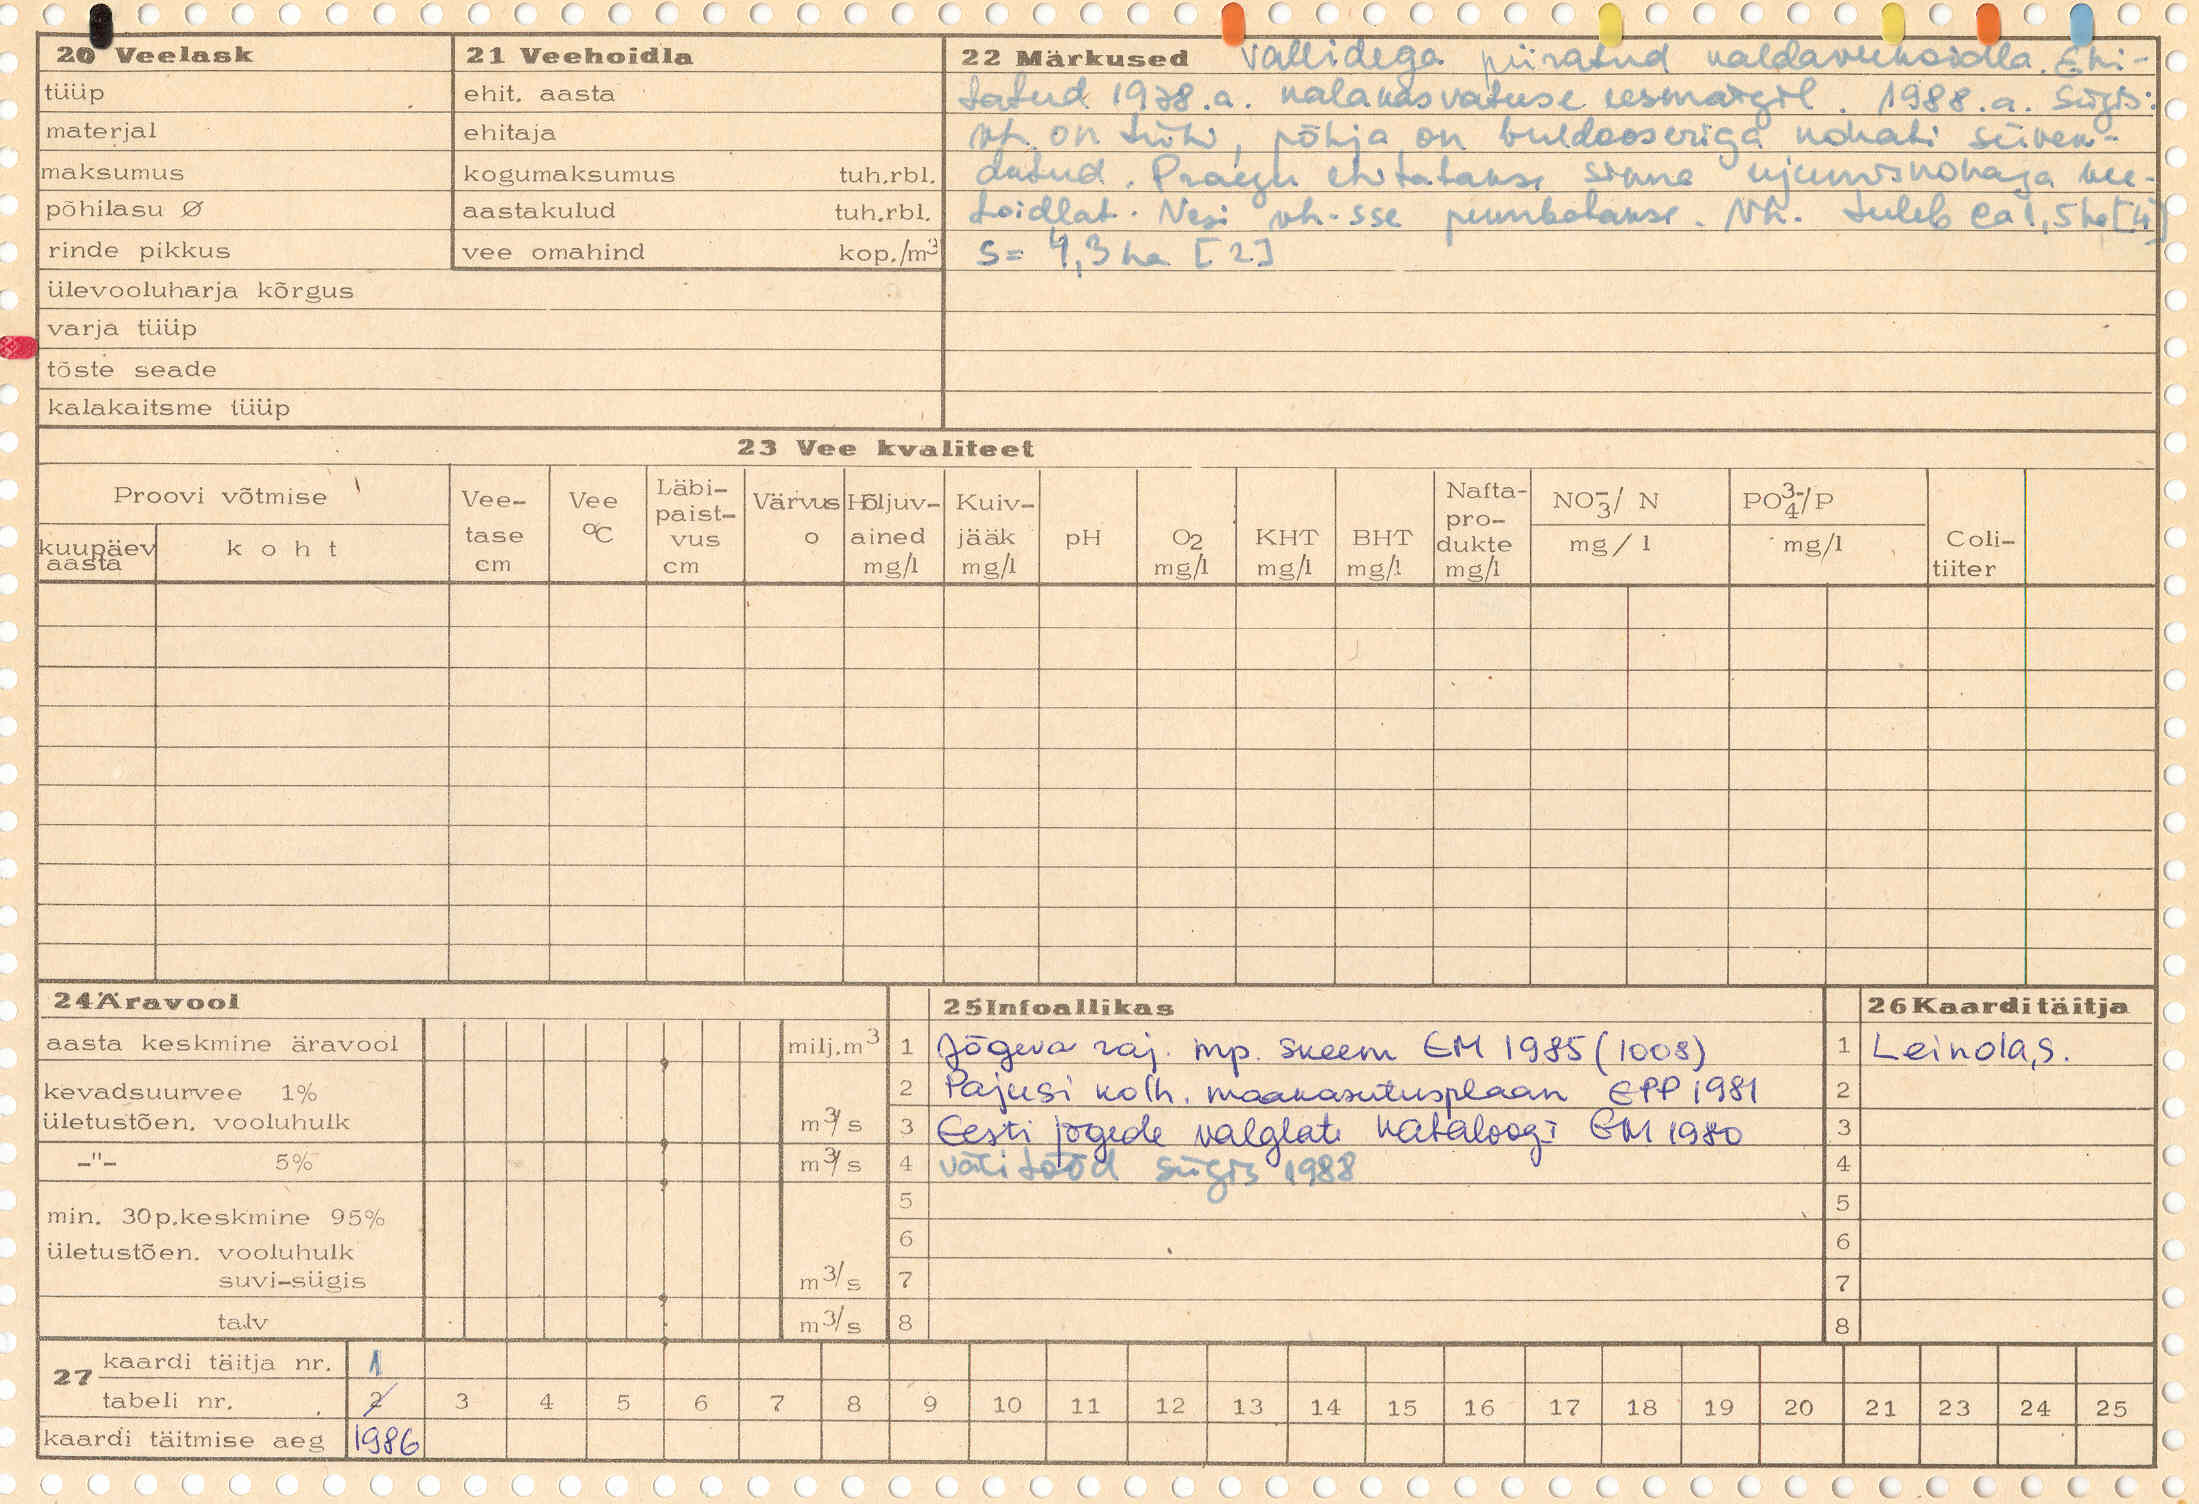 20 Veelask
tüüp
materjal
maksumus
põhilasu Ø
rinde pikkus
ülevooluharja kõrgus
varja tüüp
tõste seade
kalakaitsme tüüp
21 Veehoidla
ehit. aasta
ehitaja
kogumaksumus tuh.rbl.
aastakulud tuh.rbl.
vee omahind kop./m³
22 Märkused Vallidega piiratud kaldaveehoidla. Ehi-
tatud 1978.a. kalakasvatuse eesmärgil. 1988.a. sügis:
vh. on tühi, põhja on buldooseriga kohati süven-
datud. Praegu ehitatakse sinna ujumiskohaga vee-
hoidlat. Vesi vh-sse pumbatakse. Vh. tuleb ca 1,5 ha [4]
S= 4,3 ha [2]
23 Vee kvaliteet
Proovi võtmise
kuupäev aasta
koht
Vee-
tase
cm
Vee
°C
Läbi-
paist-
vus
cm
Värvus
o
Hõljuv-
ained
mg/l
Kuiv-
jääk
mg/l
pH
O₂
mg/l
KHT
mg/l
BHT
mg/l
Nafta-
pro-
dukte
mg/l
NO₃⁻/ N
mg/l
PO₄³⁻/P
mg/l
Coli-
tiiter
24 Äravool
aasta keskmine äravool milj.m³
kevadsuurvee 1%
ületustõen. vooluhulk m³/s
–"– 5% m³/s
min. 30p.keskmine 95%
ületustõen. vooluhulk
suvi-sügis m³/s
talv m³/s
25 Infoallikas
1 Jõgeva raj. mp. skeem EM 1985 (1008)
2 Pajusi kolh. maakasutusplaan EPP 1981
3 Eesti jõgede valglate kataloogi EM 1980
4 välitööd sügis 1988
5
6
7
8
26 Kaardi täitja
1 Leinola, S.
2
3
4
5
6
7
8
27 kaardi täitja nr. 1
tabeli nr. 2 3 4 5 6 7 8 9 10 11 12 13 14 15 16 17 18 19 20 21 23 24 25
kaardi täitmise aeg 1986